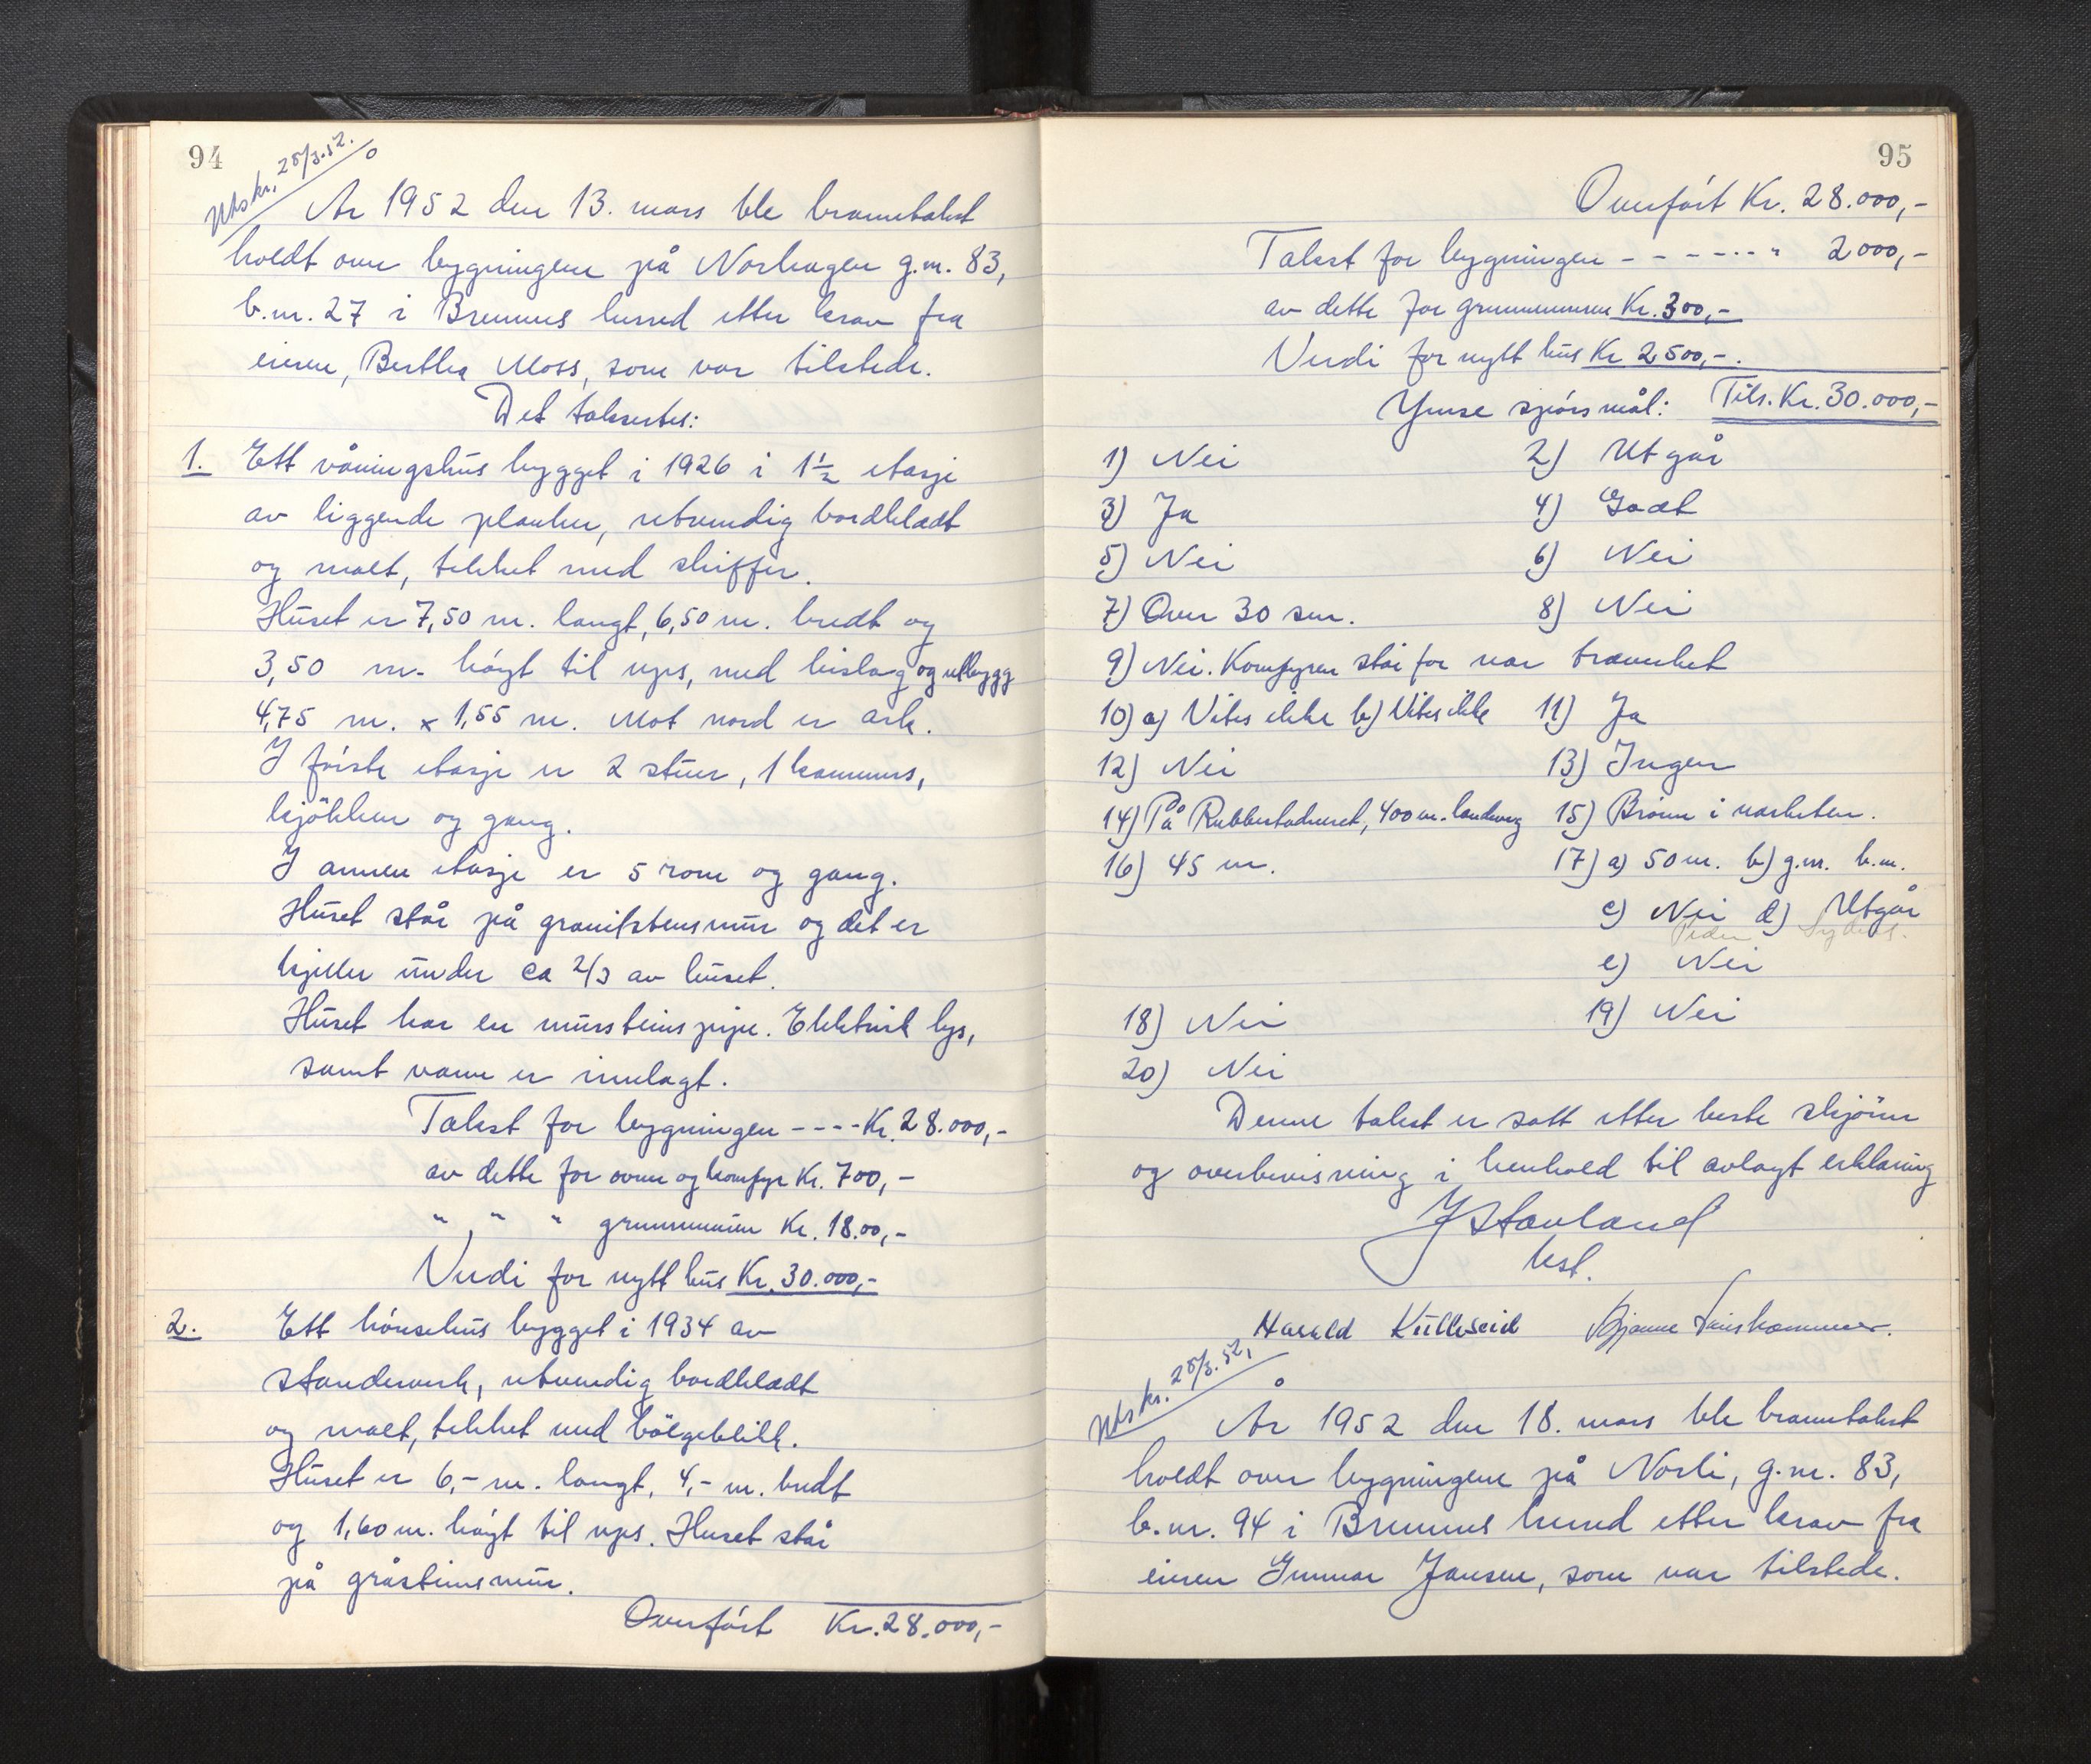 94
Utskr. 25/3.52.
År 1952 den 13. mars ble branntakst
holdt over bygningene på Norhagen g.nr. 83,
b.nr. 27 i Bremnes herred etter krav fra
eieren, Bertha Moss, som var tilstede.
Det taksertes:
1. Ett våningshus bygget i 1926 i 1½ etasje
av liggende planker, utvendig bordkledt
og malt, tekket med skiffer.
Huset er 7,50 m. langt, 6,50 m. bredt og
3,50 m. høyt til ups, med bislag og utbygg
4,75 m. x 1,55 m. Mot nord er ark.
I første etasje er 2 stuer, 1 kammers,
kjøkken og gang.
I annen etasje er 5 rom og gang.
Huset står på granitstensmur og det er
kjeller under ca 2/3 av huset.
Huset har en mursteinspipe. Elektrisk lys,
samt vann er innlagt.
Takst for bygningen ---- Kr. 28.000,-
av dette for ovner og komfyr Kr. 700,-
" " " grunnmuren Kr. 18.00,-
Verdi for nytt hus Kr. 30.000,-
2. Ett hønsehus bygget i 1934 av
standerverk, utvendig bordkledt
og malt, tekket med bølgeblikk.
Huset er 6,- m. langt, 4,- m. bredt
og 1,60 m. høyt til ups. Huset står
på gråsteinsmur.
Overført Kr. 28.000,-
95
Overført Kr. 28.000,-
Takst for bygningen - - - - - - " 2000,-
av dette for grunnmuren Kr. 300,-
Verdi for nytt hus Kr 2500,-.
Ymse spørsmål: Tils. Kr. 30.000,-
1) Nei 2) Utgår
3) Ja 4) Godt
5) Nei 6) Nei
7) Over 30 sm. 8) Nei
9) Nei. Komfyren står for nær treverket
10) a) Vites ikke b) Vites ikke 11) Ja
12) Nei 13) Ingen
14) På Rubbestadneset, 400 m. landveg 15) Brønn i nærheten.
16) 45 m. 17) a) 50 m. b) g.nr. b.nr.
c) Nei d) Utgår
e) Nei
18) Nei 19) Nei
20) Nei
Denne takst er satt etter beste skjønn
og overbevisning i henhold til avlagt erklæring
J Stavland
lest.
Harald Kulleseid Bjarne
Utskr. 25/3.52,
År 1952 den 18. mars ble branntakst
holdt over bygningene på Norli, g.nr. 83,
b.nr. 94 i Bremnes herred etter krav fra
eieren Gunnar Jansen, som var tilstede.